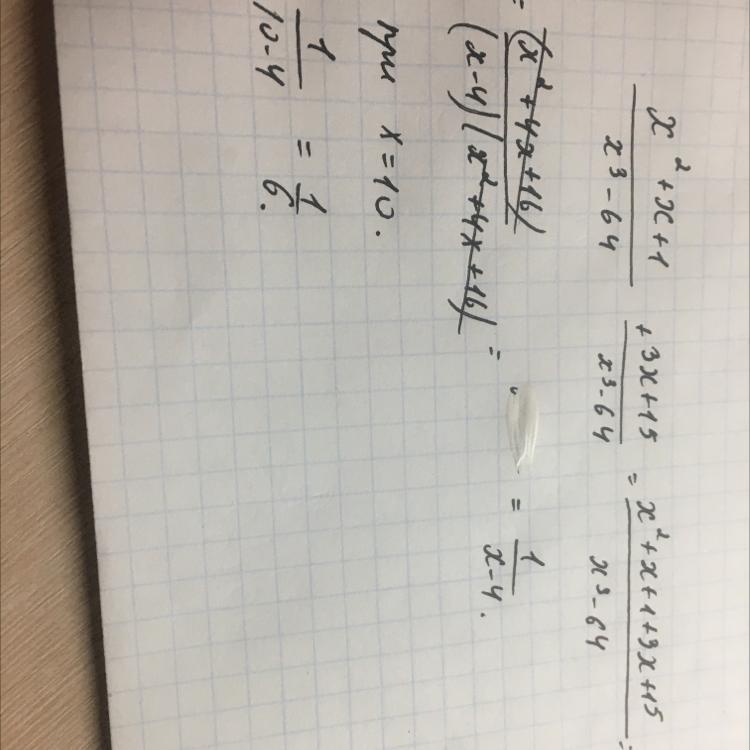 x² + x + 1 / x³ - 64 + 3x + 15 / x³ - 64 = x² + x + 1 + 3x + 15 / x³ - 64 =
= (x² + 4x + 16) / (x - 4)(x² + 4x + 16) = = 1 / x - 4.
при x = 10.
1 / 10 - 4 = 1 / 6.